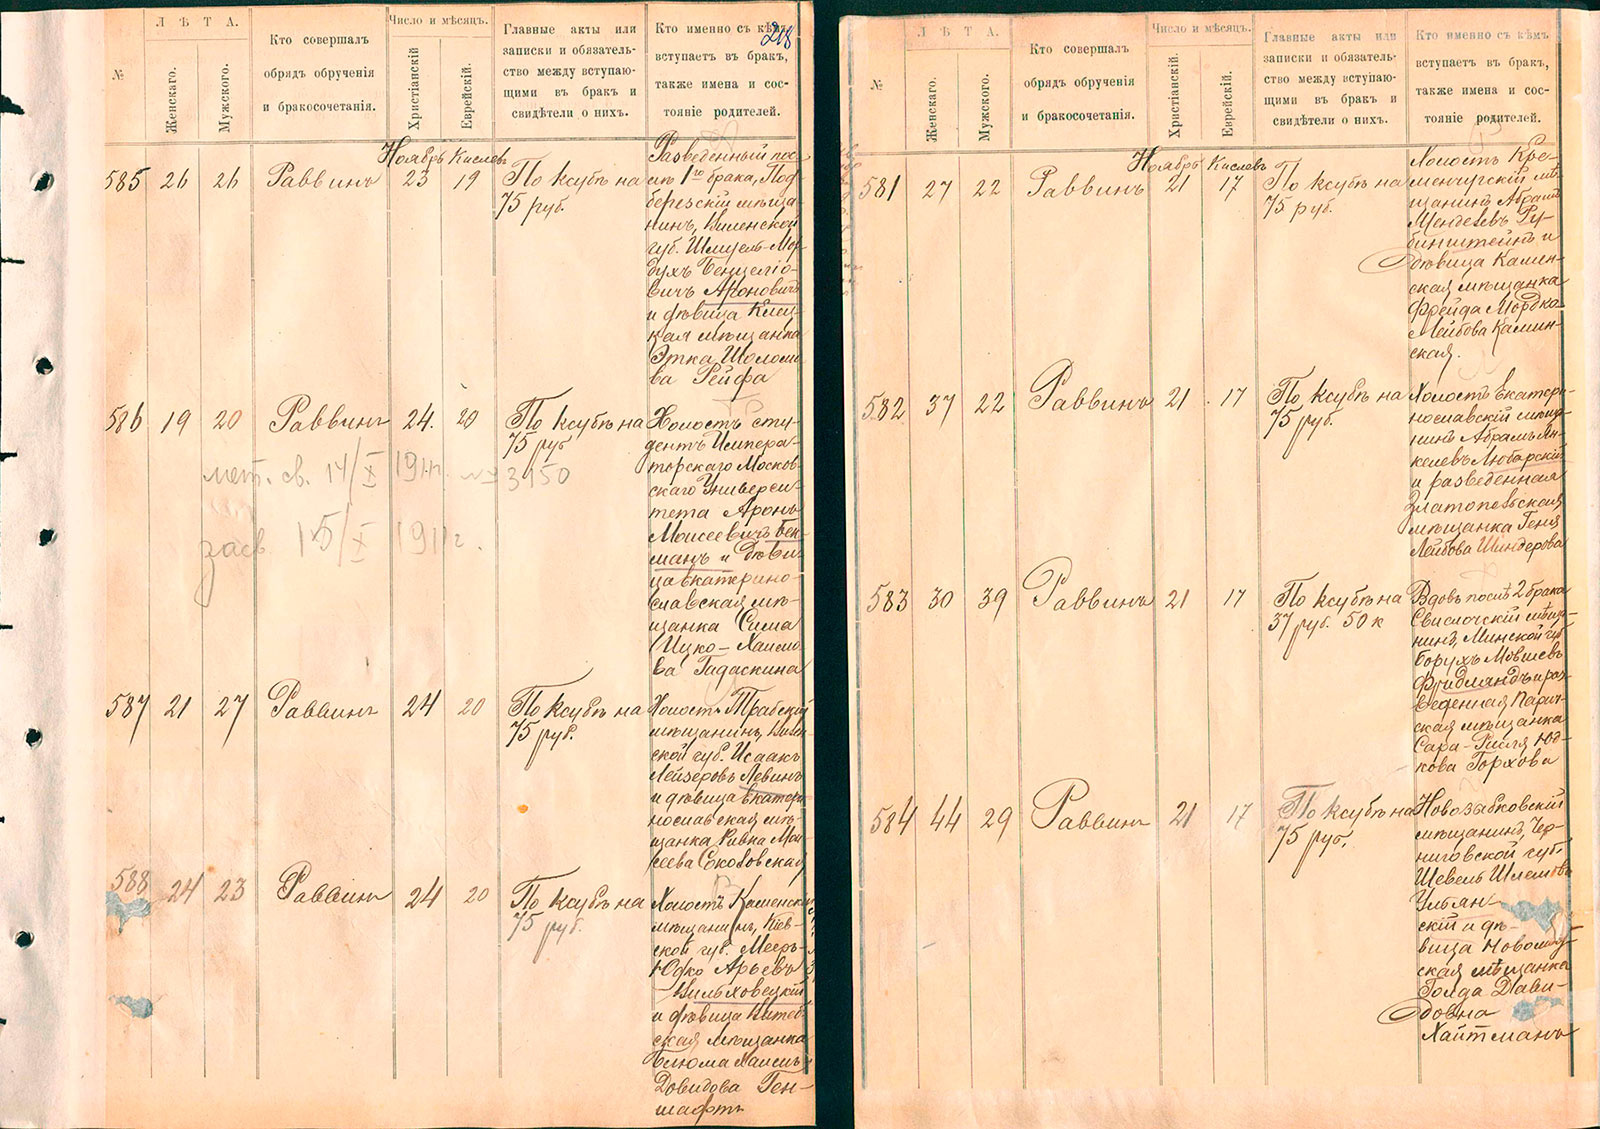 218
№
Л Ѣ Т А.
Женскаго.
Мужского.
Кто совершалъ
обрядъ обрученія
и бракосочетанія.
Число и мѣсяцъ.
Христіанскій
Еврейскій.
Главные акты или
записки и обязатель-
ство между вступаю-
щими въ бракъ и
свидѣтели о нихъ.
Кто именно съ кѣмъ
вступаетъ въ бракъ,
также имена и сос-
тояніе родителей.
Ноябрь Кислевъ
585 26 26 Раввинъ 23 19 По ксубѣ на
75 руб.
Разведенный пос-
лѣ 1го брака, Под-
березскій мѣща-
нинъ, Виленской
губ. Шмуель-Мор-
духъ Бенцелió-
вичъ Ароновичъ
и дѣвица
кая мѣщанка
Этка Шоломо-
ва Рейфа
586 19 20 Раввинъ 24. 20 По ксубѣ на
75 руб
Холостъ сту-
дентъ Импера-
торскаго Москов-
скаго Универси-
тета Аронъ
Моисеевичъ Бек-
манъ и Дѣви-
ца екатерино-
славская мѣ-
щанка Сима
Ицко-Хаимо-
ва Гадаскина
мет. св. 14/X 1911г. № 3150
засв 15/X 1911г.
587 21 27 Раввинъ 24 20 По ксубѣ на
75 руб.
Холостъ Трабскій
мѣщанинъ, Вилен-
ской губ. Исаакъ
Лейзеровъ Левинъ
и дѣвица екатери-
нославская мѣ-
щанка Ривка Мои-
сеева Соколовская
588 24 23 Раввинъ 24 20 По ксубѣ на
75 руб.
Холостъ Каменскій
мѣщанинъ, Кіев-
ской губ. Мееръ-
Юдко Арьевъ
Вильховецкій
и дѣвица Витеб-
ская мѣщанка
Блюма Хаимъ-
Довидова Ген-
шафтъ
№
Л Ѣ Т А.
Женскаго.
Мужского.
Кто совершалъ
обрядъ обрученія
и бракосочетанія.
Число и мѣсяцъ.
Христіанскій.
Еврейскій.
Главные акты или
записки и обязатель-
ство между вступаю-
щими въ бракъ и
свидѣтели о нихъ.
Кто именно съ кѣмъ
вступаетъ въ бракъ,
также имена и сос-
тояніе родителей.
Ноябрь Кислевъ
581 27 22 Раввинъ 21 17 По ксубѣ на
75 руб.
Холостъ Кре-
менчугскій мѣ-
щанинъ Абрамъ
Менделевъ Ру-
бинштейнъ и
дѣвица Камен-
ская мѣщанка
Фрейда Мордка-
Лейбова Камин-
ская.
582 37 22 Раввинъ 21 17 По ксубѣ на
75 руб.
Холостъ Екатери-
нославскій мѣща-
нинъ Абрамъ Ян-
келевъ Любарскій
и разведенная
Златопольская
мѣщанка Геня
Лейбова Шиндерова
583 30 39 Раввинъ 21 17 По ксубѣ на
37 руб. 50 к
Вдовъ послѣ 2 брака
Свислочскій мѣща-
нинъ, Минской губ
Борухъ Мовшевъ
Фридляндъ и раз-
веденная Парич-
ская мѣщанка
Сара-Рисля Юд-
кова Горхова
584 44 29 Раввинъ 21 17 По ксубѣ на
75 руб.
Новозыбковскій
мѣщанинъ, Чер-
ниговской губ,
Шевель Шлемовъ
Ульян-
скій и дѣ-
вица Новомир-
ская мѣщанка
Голда Дави-
довна
Хайтманъ